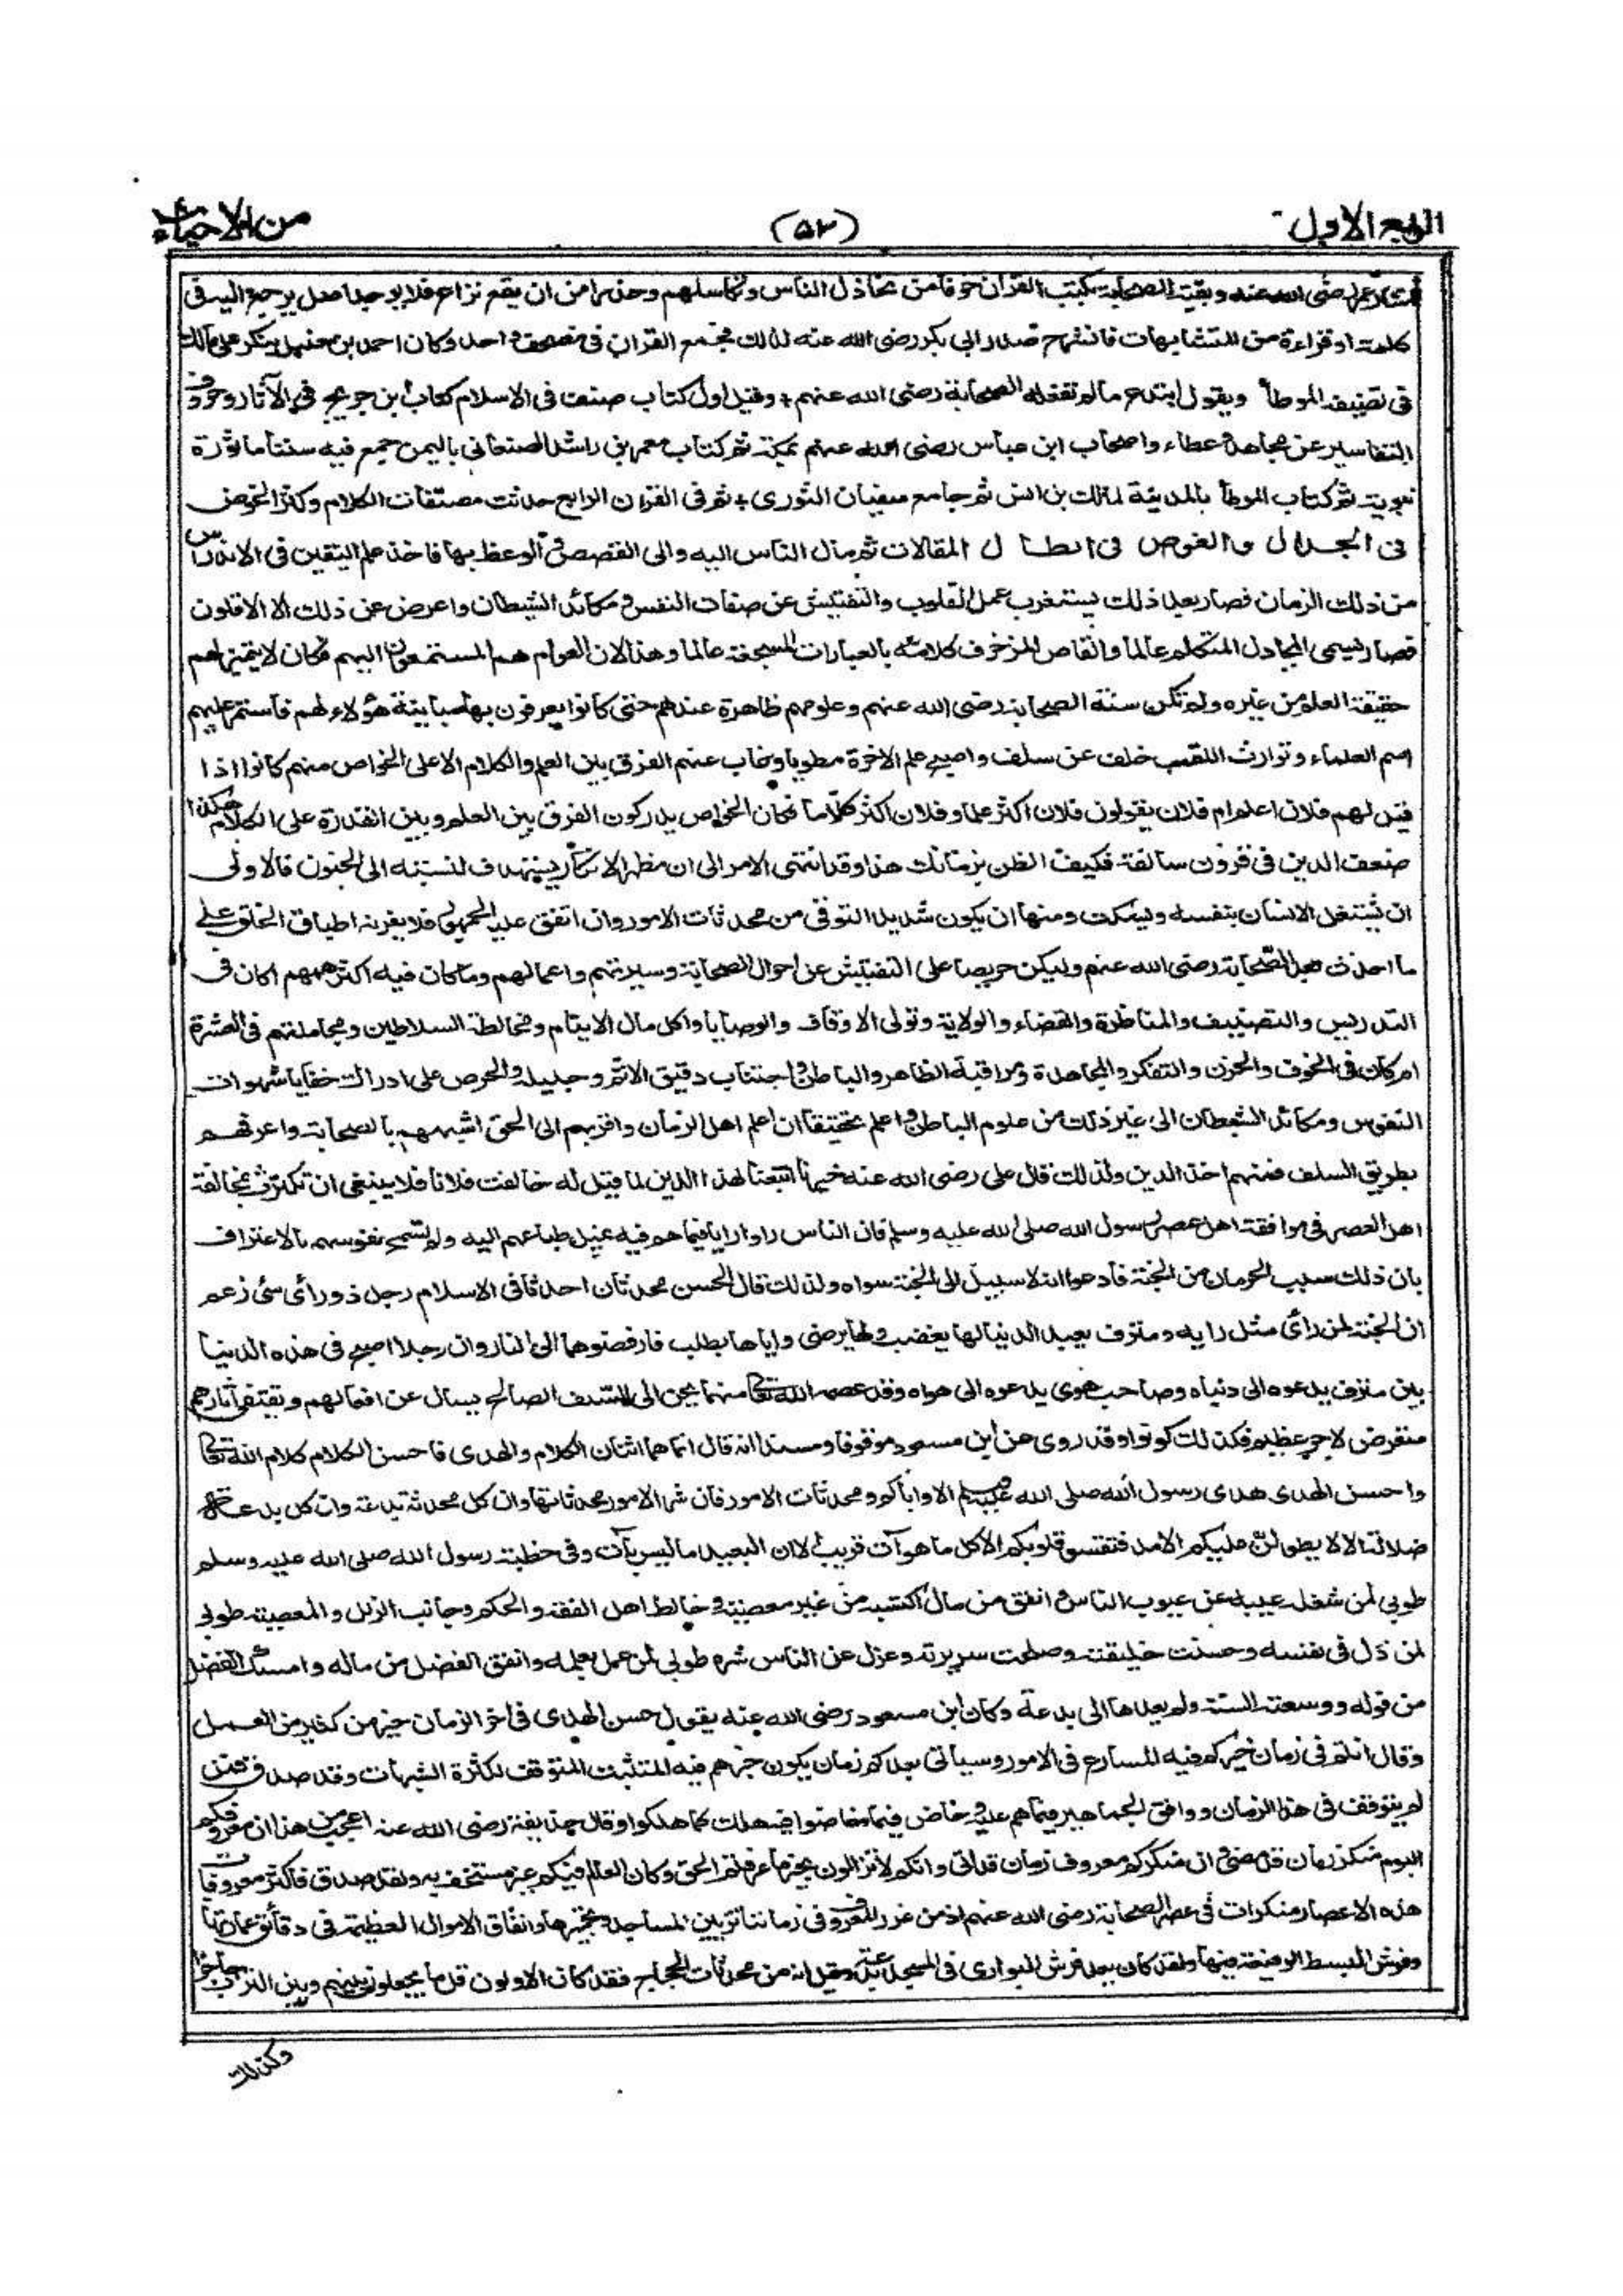 الربع الاول
(۵۳)
من الاحیاء
عمر رضی الله عنه وبقیة الصحابة بکتب القرآن خوفا من تخاذل الناس وتکاسلهم وحذرا من ان یقع نزاع فلا یوجد اصل یرجع الیه فی
کلمة او قراءة من المتشابهات فانشرح صدر ابی بکر رضی الله عنه لذلک فجمع القرآن فی مصحف واحد وکان احمد بن حنبل ینکر علی مالک
فی تصنیفه الموطأ ویقول ابتدع ما لم تفعله الصحابة رضی الله عنهم + وقیل اول کتاب صنف فی الاسلام کتاب ابن جریج فی الآثار وحروف
التفاسیر عن مجاهد وعطاء واصحاب ابن عباس رضی الله عنهم بمکة ثم کتاب معمر بن راشد الصنعانی بالیمن جمع فیه سننا ماثورة
نبویة ثم کتاب الموطأ بالمدینة لمالک بن انس ثم جامع سفیان الثوری + ثم فی القرن الرابع حدثت مصنفات الکلام وکثر الخوض
فی الجدال والغوص فی ابطال المقالات ثم مال الناس الیه والی القصص والوعظ بها فاخذ علم الیقین فی الاندراس
من ذلک الزمان فصار بعد ذلک یستغرب علم القلوب والتفتیش عن صفات النفس ومکائد الشیطان واعرض عن ذلک الا الاقلون
فصار یسمی المجادل المتکلم عالما والقاص المزخرف کلامه بالعبارات المسجعة عالما وهذا لان العوام هم المستمعون الیهم فکان لا یتمیز لهم
حقیقة العلم من غیره ولم تکن سنة الصحابة رضی الله عنهم وعلومهم ظاهرة عندهم حتی کانوا یعرفون بها مباینة هؤلاء لهم فاستمر علیهم
اسم العلماء وتوارث اللقب خلف عن سلف واصبح علم الاخرة مطویا وغاب عنهم الفرق بین العلم والکلام الا علی الخواص منهم کانوا اذا
قیل لهم فلان اعلم ام فلان یقولون فلان اکثر علما وفلان اکثر کلاما فکان الخواص یدرکون الفرق بین العلم وبین القدرة علی الکلام هکذا
ضعف الدین فی قرون سالفة فکیف الظن بزمانک هذا وقد انتهی الامر الی ان مظهر الانکار یستهدف لنسبته الی الجنون فالاولی
ان یشتغل الانسان بنفسه ویسکت ومنها ان یکون شدید التوقی من محدثات الامور وان اتفق علیه الجمهور فلا یغرنه اطباق الخلق علی
ما احدث بعد الصحابة رضی الله عنهم ولیکن حریصا علی التفتیش عن احوال الصحابة وسیرتهم واعمالهم وما کان فیه اکثر همهم اکان فی
التدریس والتصنیف والمناظرة والقضاء والولایة وتولی الاوقاف والوصایا واکل مال الایتام ومخالطة السلاطین ومجاملتهم فی العشرة
ام کان فی الخوف والحزن والتفکر والمجاهدة ومراقبة الظاهر والباطن واجتناب دقیق الاثم وجلیله والحرص علی ادراک خفایا شهوات
النفوس ومکائد الشیطان الی غیر ذلک من علوم الباطن واعلم تحقیقا ان اعلم اهل الزمان واقربهم الی الحق اشبههم بالصحابة واعرفهم
بطریق السلف فمنهم اخذ الدین ولذلک قال علی رضی الله عنه خیرنا اتبعنا لهذا الدین لما قیل له خالفت فلانا فلا ینبغی ان تکترث بمخالفة
اهل العصر فی موافقة اهل عصر رسول الله صلی الله علیه وسلم فان الناس راوا رایا فیما هم فیه لمیل طباعهم الیه ولم تسمح نفوسهم بالاعتراف
بان ذلک سبب الحرمان من الجنة فادعوا انه لا سبیل الی الجنة سواه ولذلک قال الحسن محدثان احدثا فی الاسلام رجل ذو رأی سئ زعم
ان الجنة لمن رأی مثل رایه ومترف یعبد الدنیا لها یغضب ولها یرضی وایاها یطلب فارفضوهما الی النار وان رجلا اصبح فی هذه الدنیا
بین مترف یدعوه الی دنیاه وصاحب هوی یدعوه الی هواه وقد عصمه الله تعالی منهما یحن الی السلف الصالح یسال عن افعالهم ویقتفی آثارهم
متعرض لاجر عظیم فکذلک کونوا وقد روی عن ابن مسعود موقوفا ومسندا انه قال انما هما اثنتان الکلام والهدی فاحسن الکلام کلام الله تعالی
واحسن الهدی هدی رسول الله صلی الله علیه وسلم الا وایاکم ومحدثات الامور فان شر الامور محدثاتها وان کل محدثة بدعة وان کل بدعة
ضلالة الا لا یطولن علیکم الامد فتقسو قلوبکم الا کل ما هو آت قریب الا ان البعید ما لیس بآت وفی خطبة رسول الله صلی الله علیه وسلم
طوبی لمن شغله عیبه عن عیوب الناس وانفق من مال اکتسبه من غیر معصیة وخالط اهل الفقه والحکم وجانب الزلل والمعصیة طوبی
لمن ذل فی نفسه وحسنت خلیقته وصلحت سریرته وعزل عن الناس شره طوبی لمن عمل بعلمه وانفق الفضل من ماله وامسک الفضل
من قوله ووسعته السنة ولم یعدها الی بدعة وکان ابن مسعود رضی الله عنه یقول حسن الهدی فی اخر الزمان خیر من کثیر من العمل
وقال انتم فی زمان خیرکم فیه المسارع فی الامور وسیاتی بعدکم زمان یکون خیرهم فیه المتثبت المتوقف لکثرة الشبهات وقد صدق فمن
لم یتوقف فی هذا الزمان ووافق الجماهیر فیما هم علیه وخاض فیما خاضوا فیه هلک کما هلکوا وقال حذیفة رضی الله عنه اعجب من هذا ان معروفکم
الیوم منکر زمان قد مضی وان منکرکم معروف زمان قد اتی وانکم لا تزالون بخیر ما عرفتم الحق وکان العالم فیکم غیر مستخف به ولقد صدق فاکثر معروفات
هذه الاعصار منکرات فی عصر الصحابة رضی الله عنهم اذ من غرر المعروف فی زماننا تزیین المساجد وتنجیرها وانفاق الاموال العظیمة فی دقائق عمارتها
وفرش البسط الرفیعة فیها ولقد کان یعد فرش البواری فی المسجد بدعة وقیل انه من محدثات الحجاج فقد کان الاولون قل ما یجعلون بینهم وبین التراب حاجزا
وکذلک